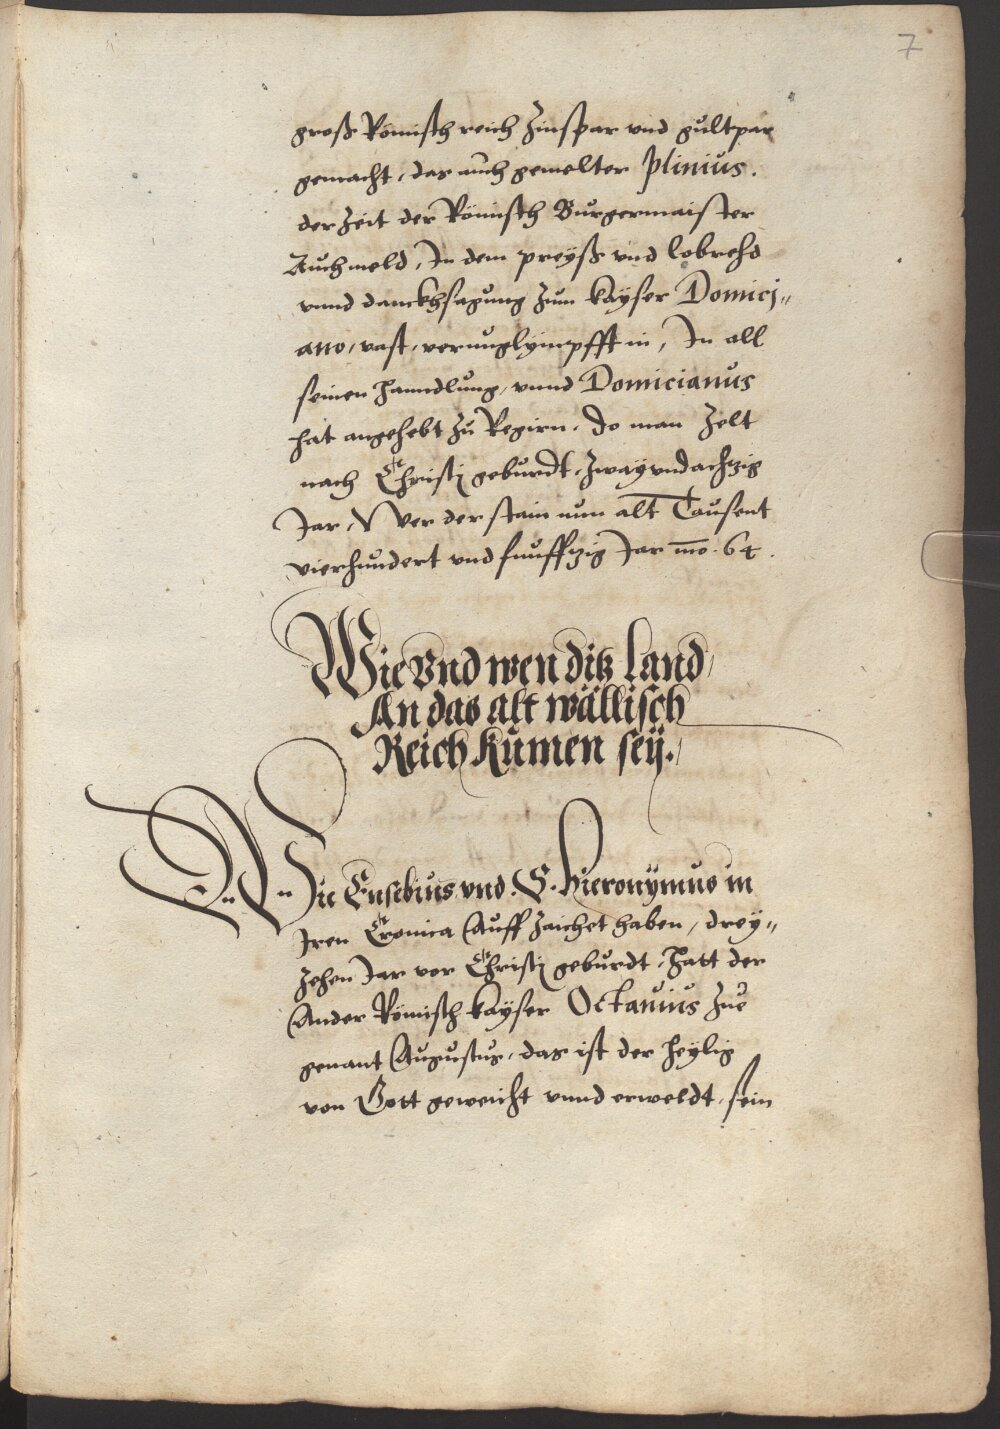 7
groß Römisch reich Zinspar vnd gultpar
gemacht, das auch gemelter Plinius.
der Zeit der Römisch Burgermaister
Auch meld, In dem preyß vnd lobrehd
vnnd danckhsagung zum kayser Domici„
ano, vast, verunglympfft in, In all
seinen Hanndlung, vnnd Domicianus
hat angehebt zu Regirn. Do man Zelt
nach Christj geburdt, zwayvndachtzig
Jar, der stain nun alt Tausent
vierhundert vnd funfftzig Jar mo. 64.
Wie Vnd wen ditz Land,
An das alt wällisch
Reich kumen seÿ.
Wie Eusebius vnd. S. Hieronÿmus in
Jren Cronica Auff Zaichet haben, drey„
Zehen Jar vor Christj geburdt, Hatt der
Ander Römisch kaÿser Octauius Zue
genant Augustus, das ist der heylig
von Gott geweicht vnnd erweldt, sein